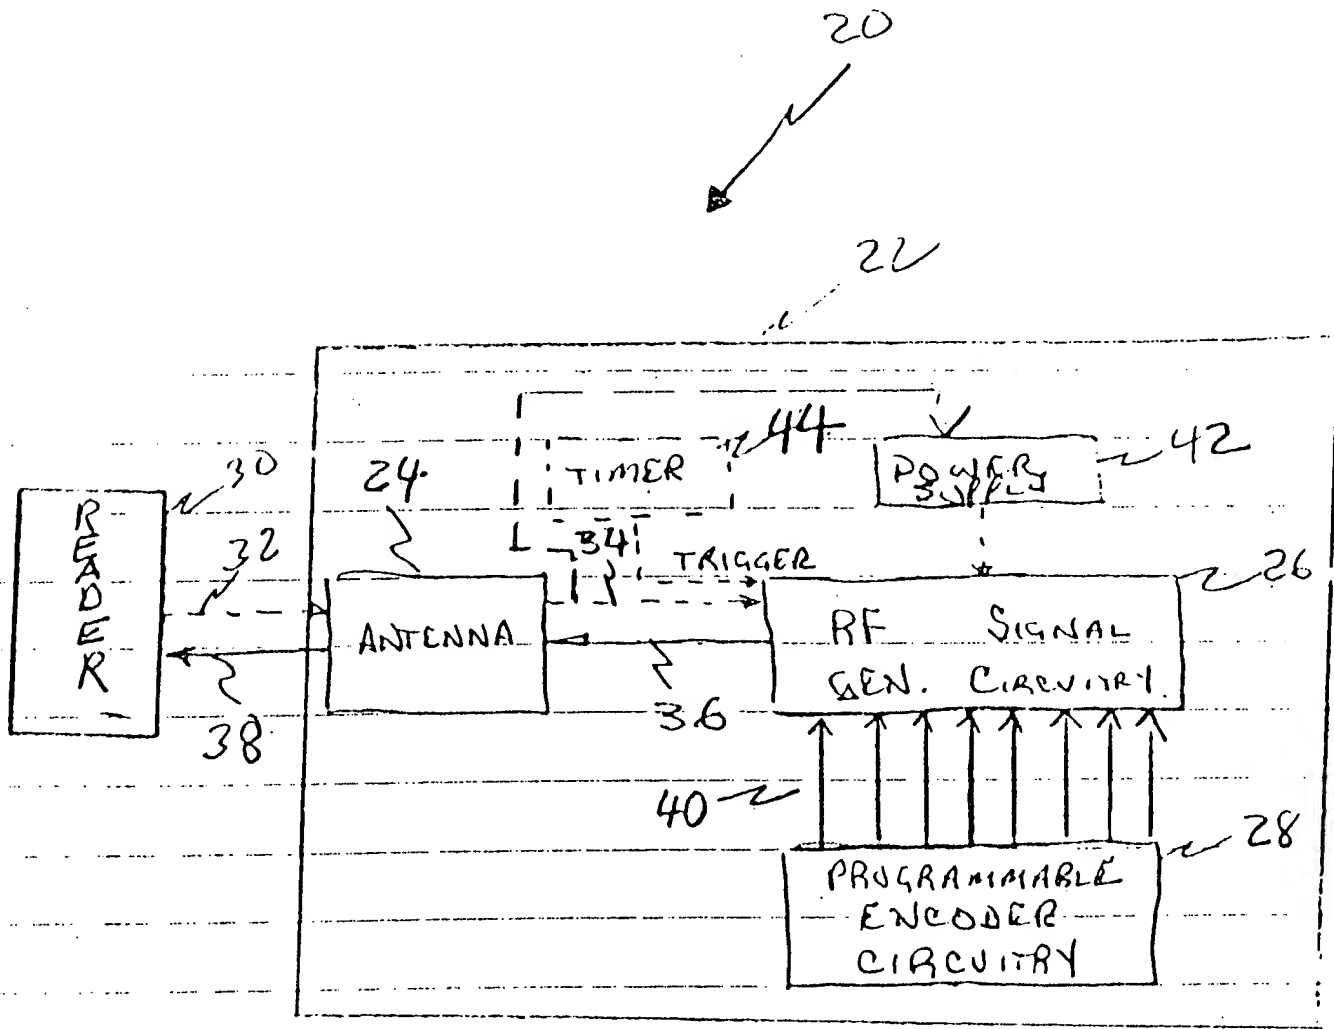 20
22
44
TIMER
POWER
SUPPLY
42
24
30
READER
32
34
TRIGGER
26
ANTENNA
RF SIGNAL
GEN. CIRCUITRY
36
38
40
28
PROGRAMMABLE
ENCODER
CIRCUITRY